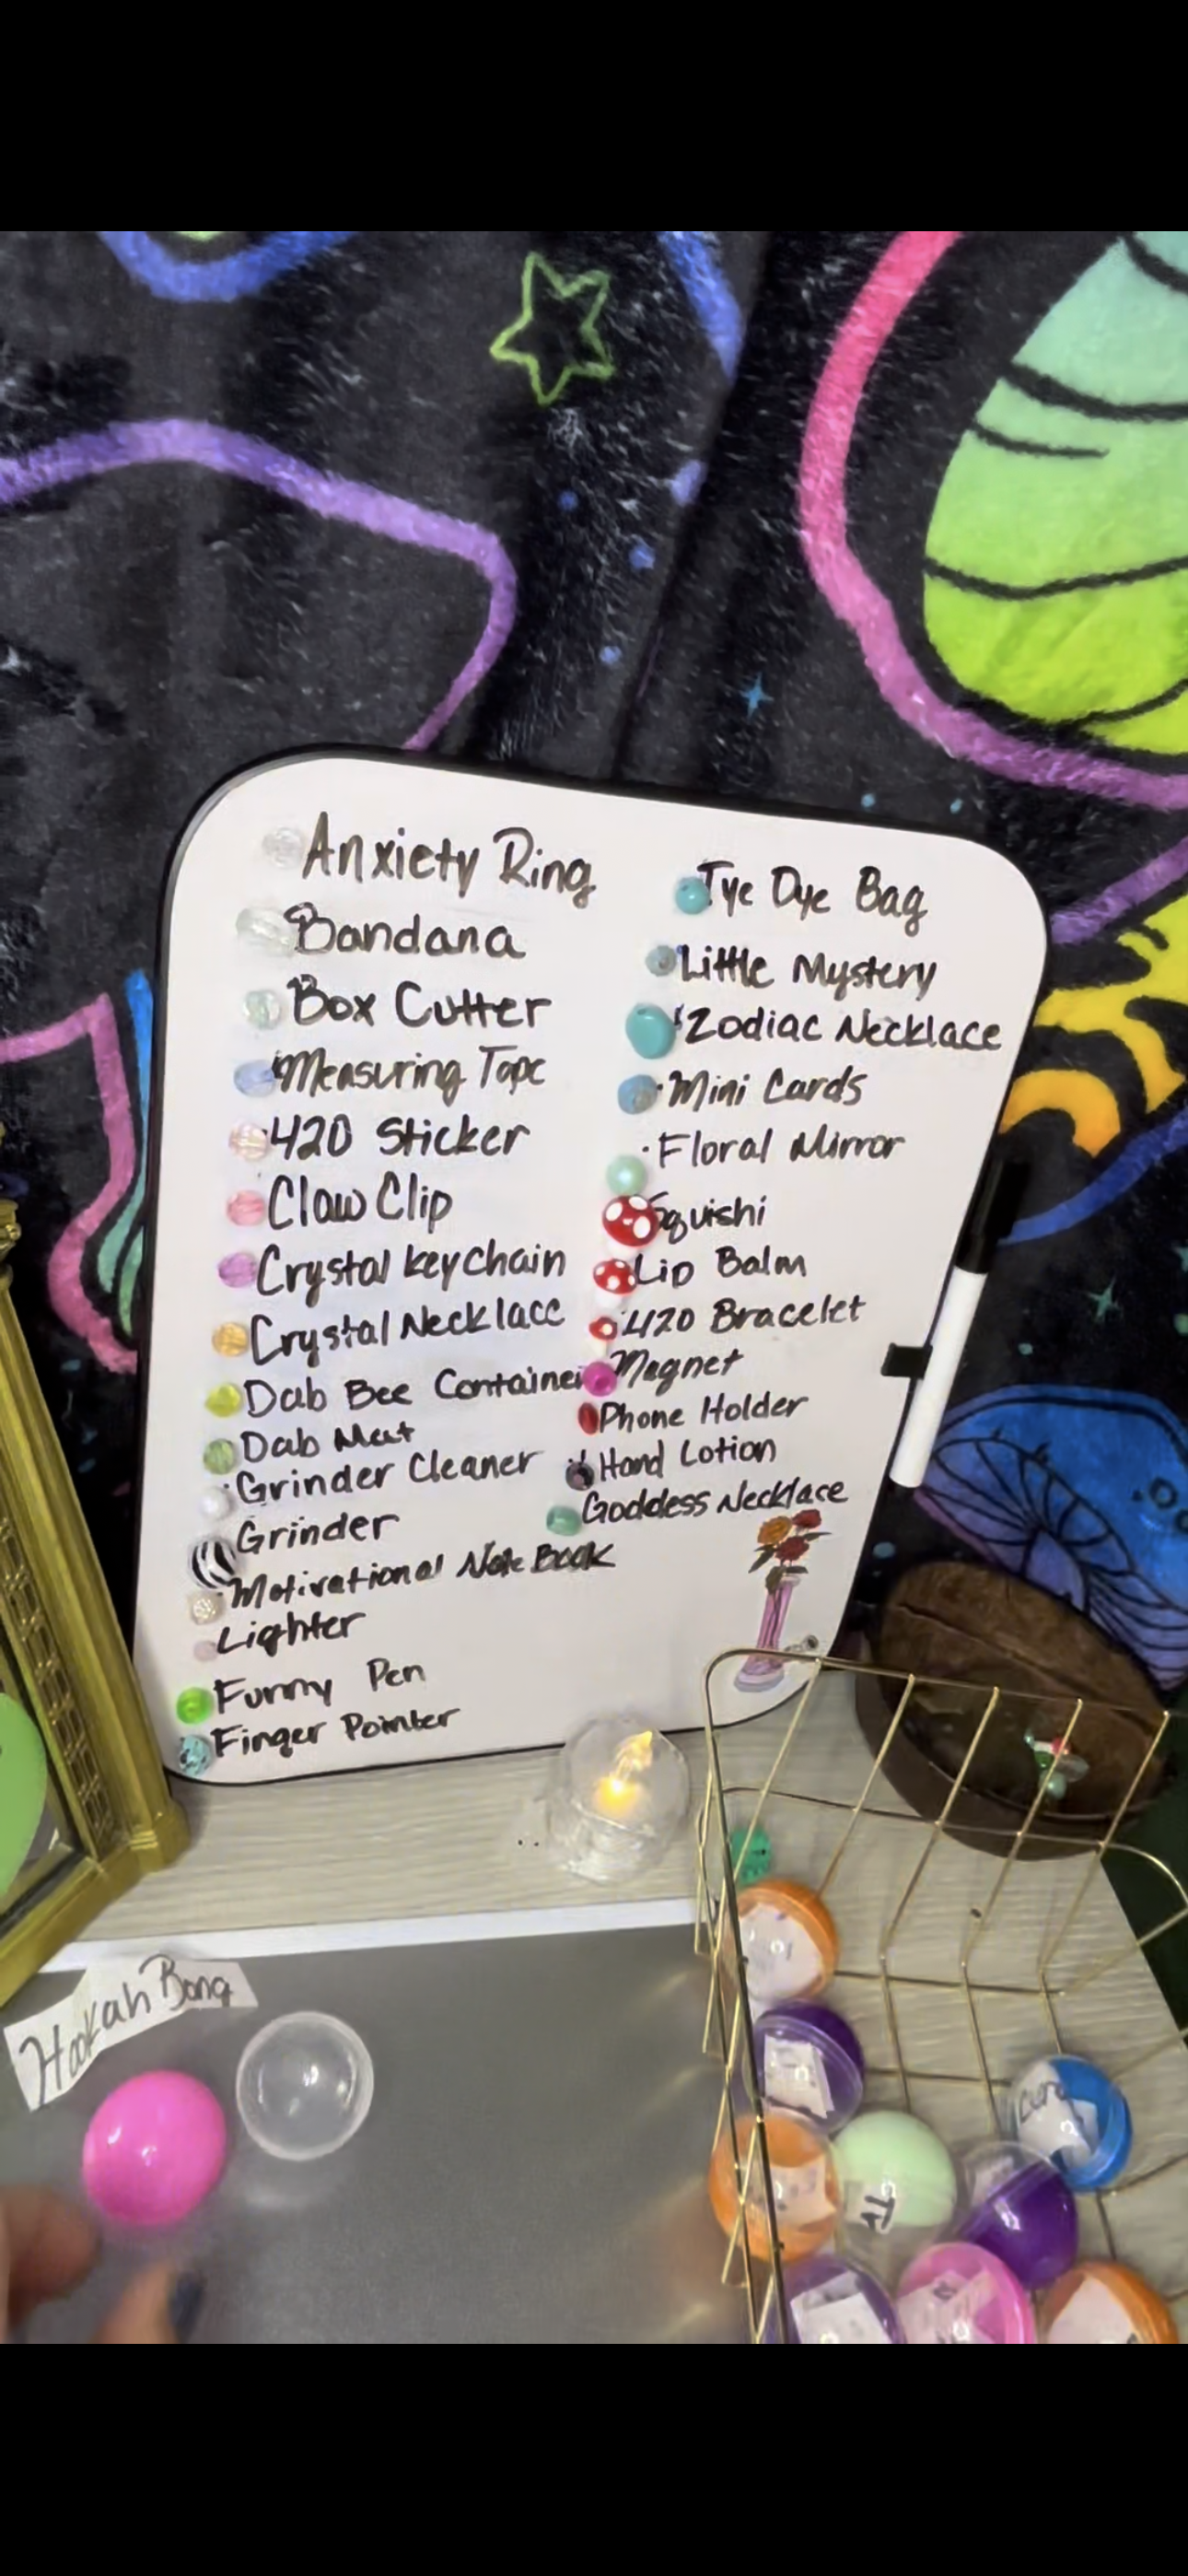 Anxiety Ring
Bandana
Box Cutter
Measuring Tape
420 Sticker
Claw Clip
Crystal keychain
Crystal Necklace
Dab Bee Container
Dab Mat
Grinder Cleaner
Grinder
Motivational Note Book
Lighter
Funny Pen
Finger Pointer
Tye Dye Bag
Little Mystery
Zodiac Necklace
Mini Cards
Floral Mirror
Squishi
Lip Balm
420 Bracelet
Magnet
Phone Holder
Hand Lotion
Goddess Necklace
Hookah Bong